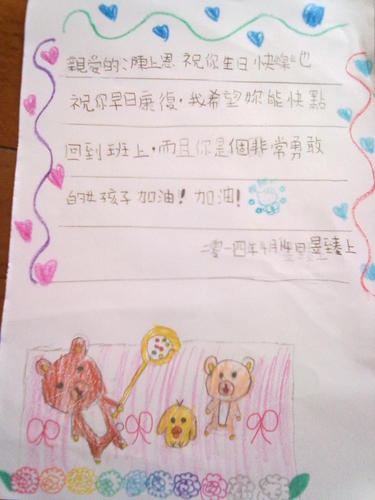 親愛的:陳上恩 祝你生日快樂也
祝你早日康復,我希望妳能快點
回到班上,而且你是個非常勇敢
的女孩子加油!加油!
零一四年4月 日 上